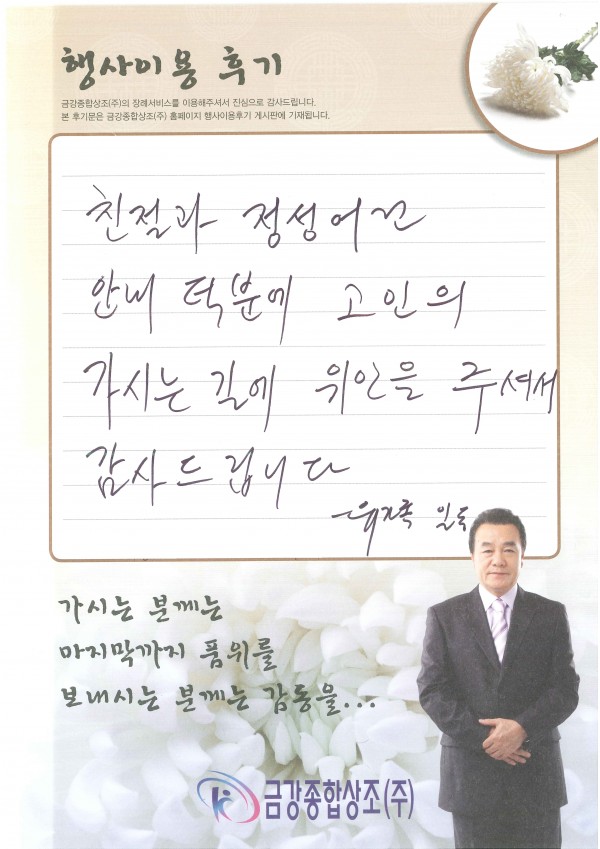 행사이용 후기
금강종합상조(주)의 장례서비스를 이용해주셔서 진심으로 감사드립니다.
본 후기문은 금강종합상조(주) 홈페이지 행사이용후기 게시판에 기재됩니다.
친절과 정성어린
안내 덕분에 고인의
가시는 길에 위안을 주셔서
감사드립니다
-유가족 일동
가시는 분께는
마지막까지 품위를
보내시는 분께는 감동을...
금강종합상조(주)